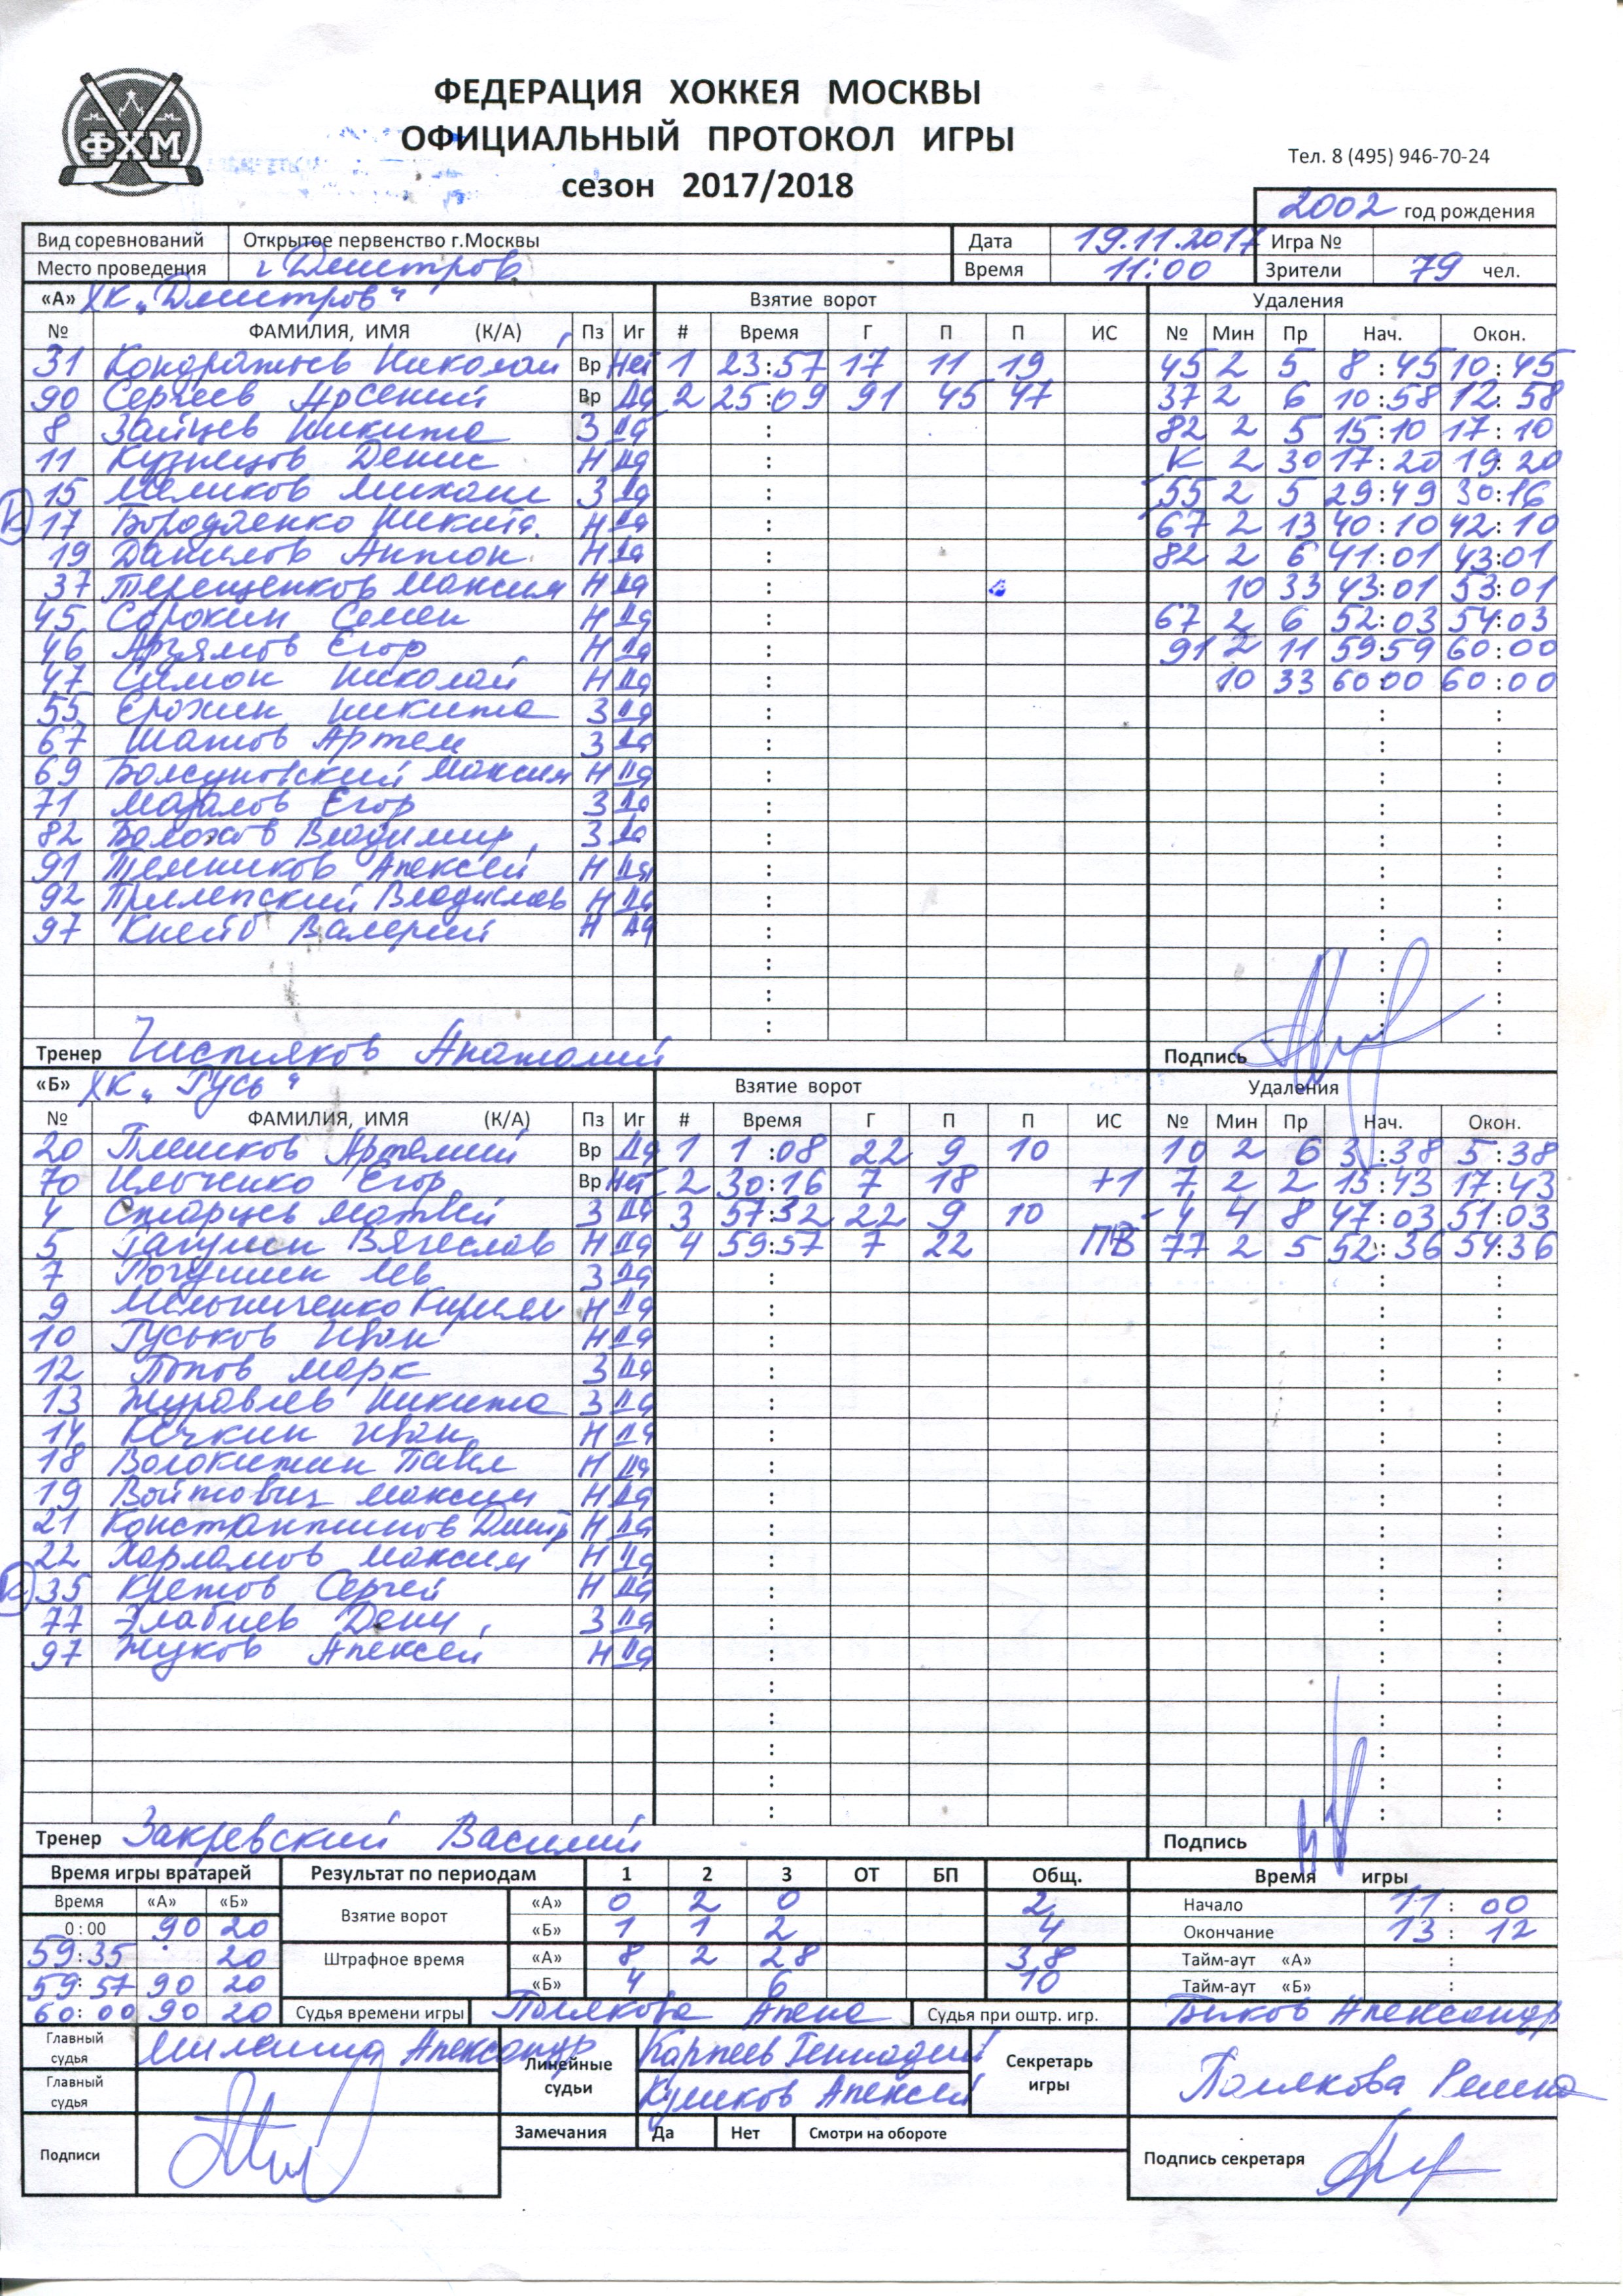 ФХМ
ФЕДЕРАЦИЯ ХОККЕЯ МОСКВЫ
ОФИЦИАЛЬНЫЙ ПРОТОКОЛ ИГРЫ
сезон 2017/2018
Тел. 8 (495) 946-70-24
2002 год рождения
Вид соревнований Открытое первенство г.Москвы Дата 19.11.2017 Игра №
Место проведения г Дмитров Время 11:00 Зрители 79 чел.
«А» ХК „Дмитров" Взятие ворот Удаления
№ ФАМИЛИЯ, ИМЯ (К/А) Пз Иг # Время Г П П ИС № Мин Пр Нач. Окон.
31 Кондратьев Николай Вр Нет 1 23:57 17 11 19 45 2 5 8:45 10:45
90 Сергеев Арсений Вр Да 2 25:09 91 45 47 37 2 6 10:58 12:58
8 Зайцев Никита З Да : 82 2 5 15:10 17:10
11 Кузнецов Денис Н Да : К 2 30 17:20 19:20
15 Меликов Михаил З Да : 55 2 5 29:49 30:16
К 17 Бородаенко Никита. Н Да : 67 2 13 40:10 42:10
19 Данилов Антон Н Да : 82 2 6 41:01 43:01
37 Терещенков Максим Н Да : 10 33 43:01 53:01
45 Сорокин Семен Н Да : 67 2 6 52:03 54:03
46 Арзямов Егор Н Да : 91 2 11 59:59 60:00
47 Симон Николай Н Да : 10 33 60:00 60:00
55 Ерохин Никита З Да : : :
67 Шатов Артем З Да : : :
69 Болсуновский Максим Н Да : : :
71 Мазалов Егор З Да : : :
82 Владимир З Да : : :
91 Темников Алексей Н Да : : :
92 Прилепский Владислав Н Да : : :
97 Валерий Н Да : : :
: : :
: : :
: : :
Тренер Чистяков Анатолий Подпись
«Б» ХК „Гусь" Взятие ворот Удаления
№ ФАМИЛИЯ, ИМЯ (К/А) Пз Иг # Время Г П П ИС № Мин Пр Нач. Окон.
20 Плешков Артемий Вр Да 1 1:08 22 9 10 10 2 6 3:38 5:38
70 Ильченко Егор Вр Нет 2 30:16 7 18 +1 7 2 2 15:43 17:43
4 Старцев Матвей З Да 3 57:32 22 9 10 4 4 8 47:03 51:03
5 Гагулин Вячеслав Н Да 4 59:57 7 22 ПВ 77 2 5 52:36 54:36
7 Погудин Лев З Да : : :
9 Мельниченко Кирилл Н Да : : :
10 Гуськов Иван Н Да : : :
12 Попов Марк З Да : : :
13 Журавлев Никита З Да : : :
14 Кечкин Иван Н Да : : :
18 Волокитин Павел Н Да : : :
19 Войтович Максим Н Да : : :
21 Константинов Дмитр Н Да : : :
22 Харламов Максим Н Да : : :
К 35 Кретов Сергей Н Да : : :
77 Элабиев Дени З Да : : :
97 Жуков Алексей Н Да : : :
: : :
: : :
: : :
: : :
: : :
Тренер Закревский Василий Подпись
Время игры вратарей Результат по периодам 1 2 3 ОТ БП Общ. Время игры
Время «А» «Б» Взятие ворот «А» 0 2 0 2 Начало 11:00
0:00 90 20 «Б» 1 1 2 4 Окончание 13:12
59:35 · 20 Штрафное время «А» 8 2 28 38 Тайм-аут «А» :
59:57 90 20 «Б» 4 6 10 Тайм-аут «Б» :
60:00 90 20 Судья времени игры Полякова Алена Судья при оштр. игр. Быков Александр
Главный судья Милешин Александр Линейные судьи Карпеев Геннадий Секретарь игры Полякова Регина
Главный судья Кумков Алексей
Подписи Замечания Да Нет Смотри на обороте Подпись секретаря